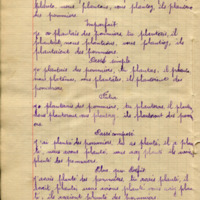 plante, nous plantons, vous plantez, ils plantent
des pommiers
Imparfait
je plantais des pommiers, tu plantais, il
plantait, nous plantions, vous plantiez, ils
plantaient des pommiers
Passé simple
je plantai des pommiers, tu plantas, il planta
nous plantâmes, vous plantâtes, ils plantèrent
des pommiers
Futur
je planterai des pommiers, tu planteras, il
Passé composé
j'ai planté des pommiers, tu as planté, il a
nous avons planté, vous avez planté, ils ont
planté des pommiers
Plus que Parfait
j'avais planté des pommiers, tu avais planté, il
avait planté, nous avions planté
ils avaient planté des pommiers